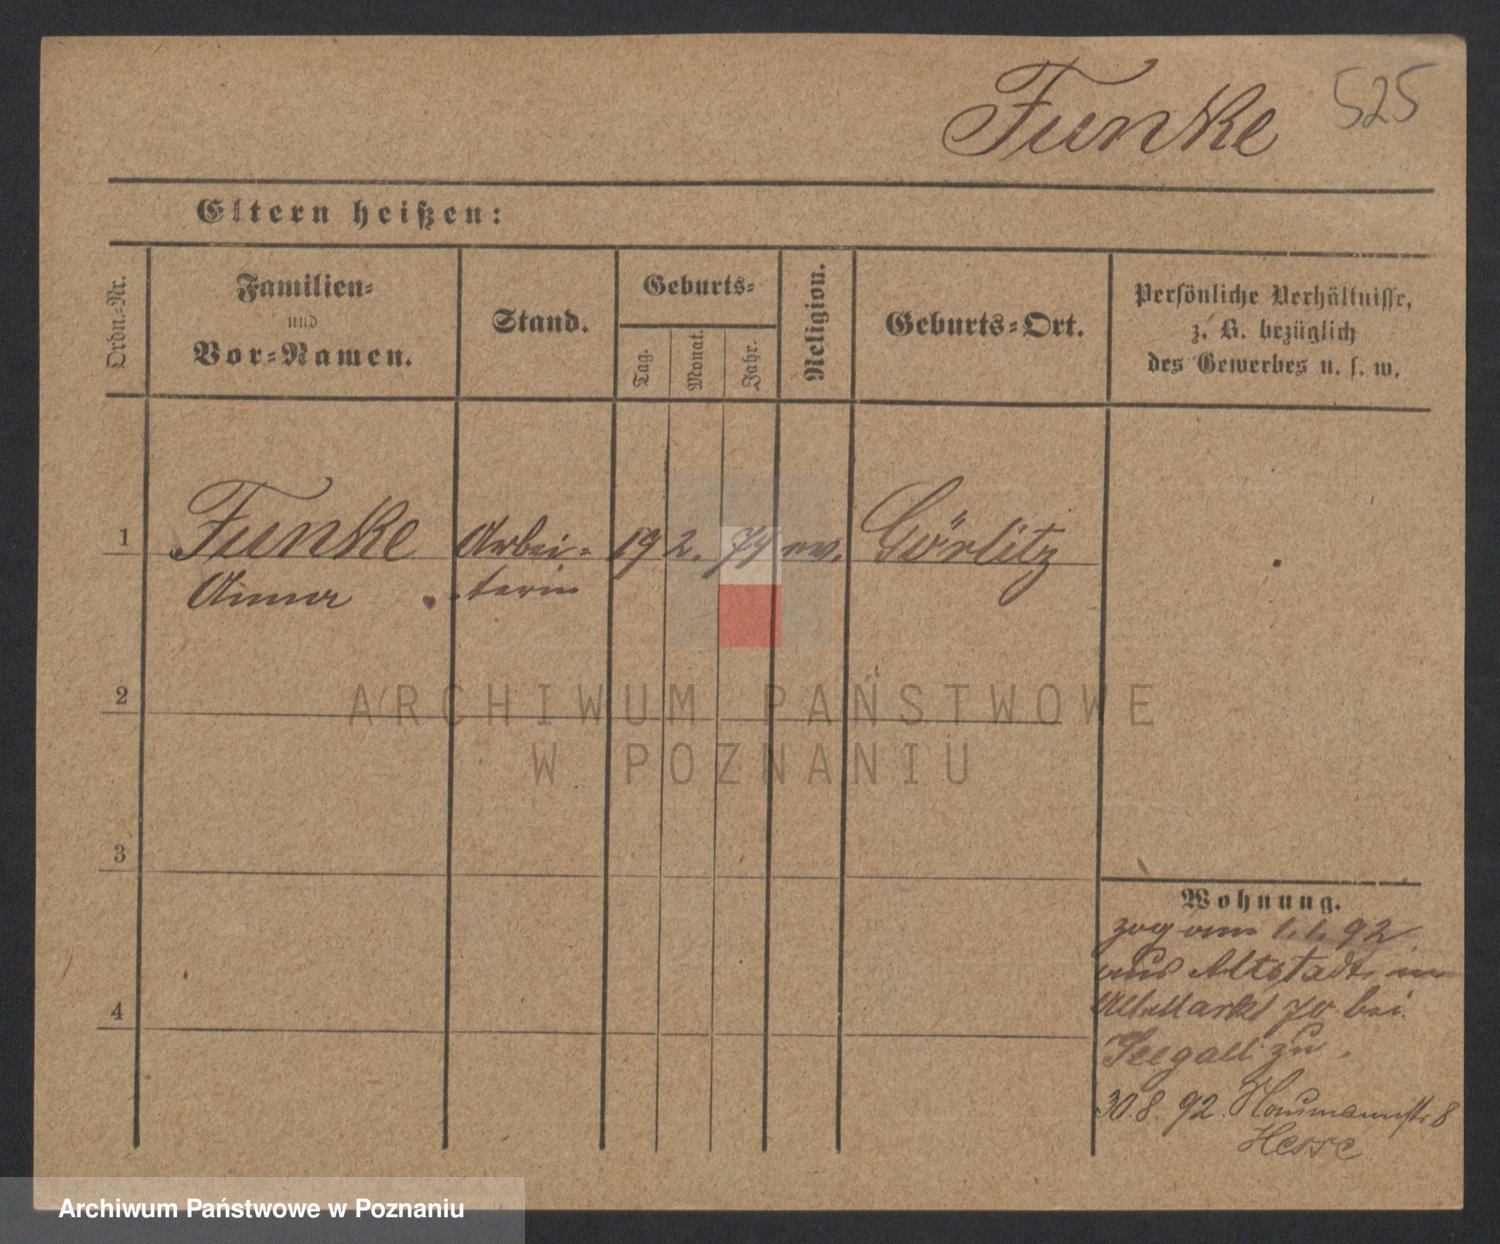 Funke 525
Eltern heißen:
Ordn.-Nr.
Familien-
und
Vor-Namen.
Stand.
Geburts-
Tag.
Monat.
Jahr.
Religion.
Geburts-Ort.
Persönliche Verhältnisse,
z. B. bezüglich
des Gewerbes u. s. w.
1 Funke Arbei- 19 2. 74 ev. Görlitz
Anna terin
2
3
4
Wohnung.
zog am 1.1.92.
aus Altstadt, in
Alt. Markt 70 bei
Seegall zu.
30.8.92. Naumannstr. 8
Hesse
ARCHIWUM PAŃSTWOWE
W POZNANIU
Archiwum Państwowe w Poznaniu